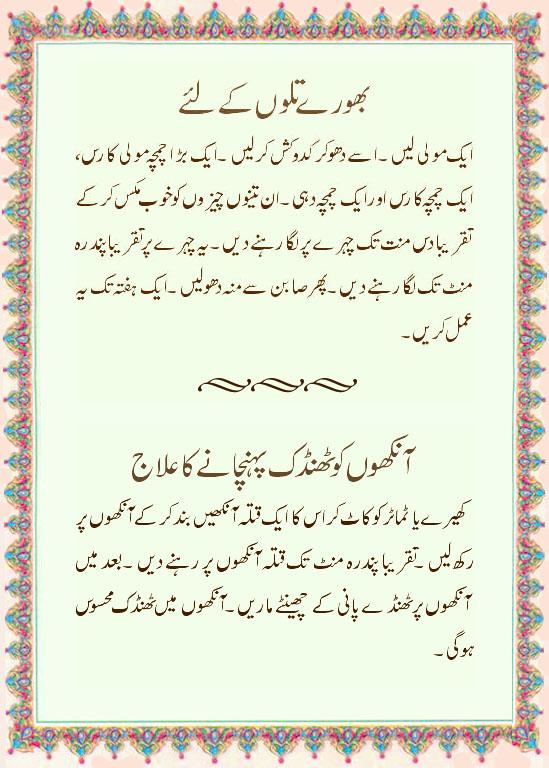 بھورے تلوں کے لئے
ایک مولی لیں ۔اسے دھو کر کدو کش کرلیں ۔ایک بڑا چمچہ مولی کا رس،
ایک چمچہ کا رس اور ایک چمچہ دہی ۔ان تینوں چیزوں کو خوب مکس کر کے
تقریبا دس منت تک چہرے پر لگا رہنے دیں ۔یہ چہرے پر تقریبا پندرہ
منٹ تک لگا رہنے دیں ۔پھر صابن سے منہ دھولیں ۔ایک ہفتہ تک یہ
عمل کریں ۔
آنکھوں کو ٹھنڈک پہنچانے کا علاج
کھیرے یا ٹماٹر کو کاٹ کر اس کا ایک قتلہ آنکھیں بند کر کے آنکھوں پر
رکھ لیں ۔تقریبا پندرہ منٹ تک قتلہ آنکھوں پر رہنے دیں ۔بعد میں
آنکھوں پر ٹھنڈے پانی کے چھینٹے ماریں ۔آنکھوں میں ٹھنڈک محسوس
ہوگی ۔